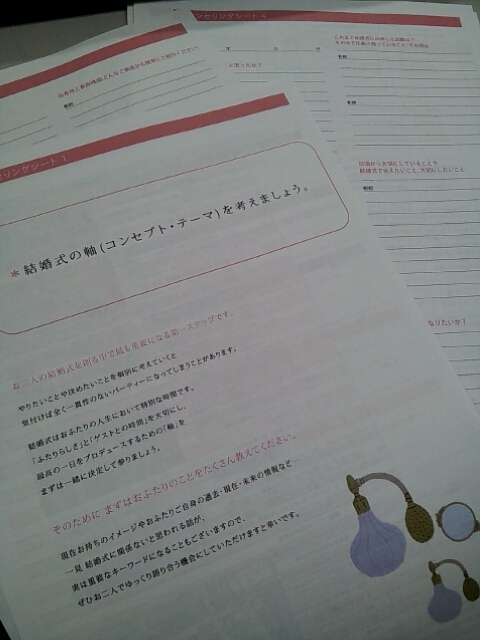 セリングシート 1
*結婚式の軸(コンセプト・テーマ)を考えましょう。
お二人の結婚式を創る中で最も重要になる第一ステップです。
やりたいことや決めたいことを個別に考えていくと
気付けば全く一貫性のないパーティーになってしまうことがあります。
結婚式はおふたりの人生において特別な時間です。
「ふたりらしさ」と「ゲストとの時間」を大切にし、
最高の一日をプロデュースするための「軸」を
まずは一緒に決定して参りましょう。
そのために まずはおふたりのことをたくさん教えてください。
現在お持ちのイメージやおふたりご自身の過去・現在・未来の情報など…
一見 結婚式に関係ないと思われる話が、
実は重要なキーワードになることもございますので、
ぜひお二人でゆっくり語り合う機会にしていただけますと幸いです。
ンセリングシート 4
これまで結婚式に出席した回数は?
その中で印象に残っていること、その理由
新郎
新婦
日頃から大切にしていることや
結婚式で伝えたいこと、大切にしたいこと
新郎
なりたいか?